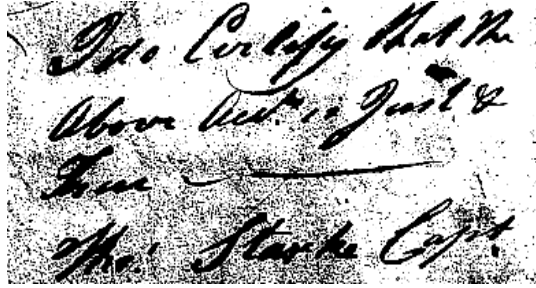 I do Certify that the
Above Acct. is Just &
True
Thos. Starke Capt.